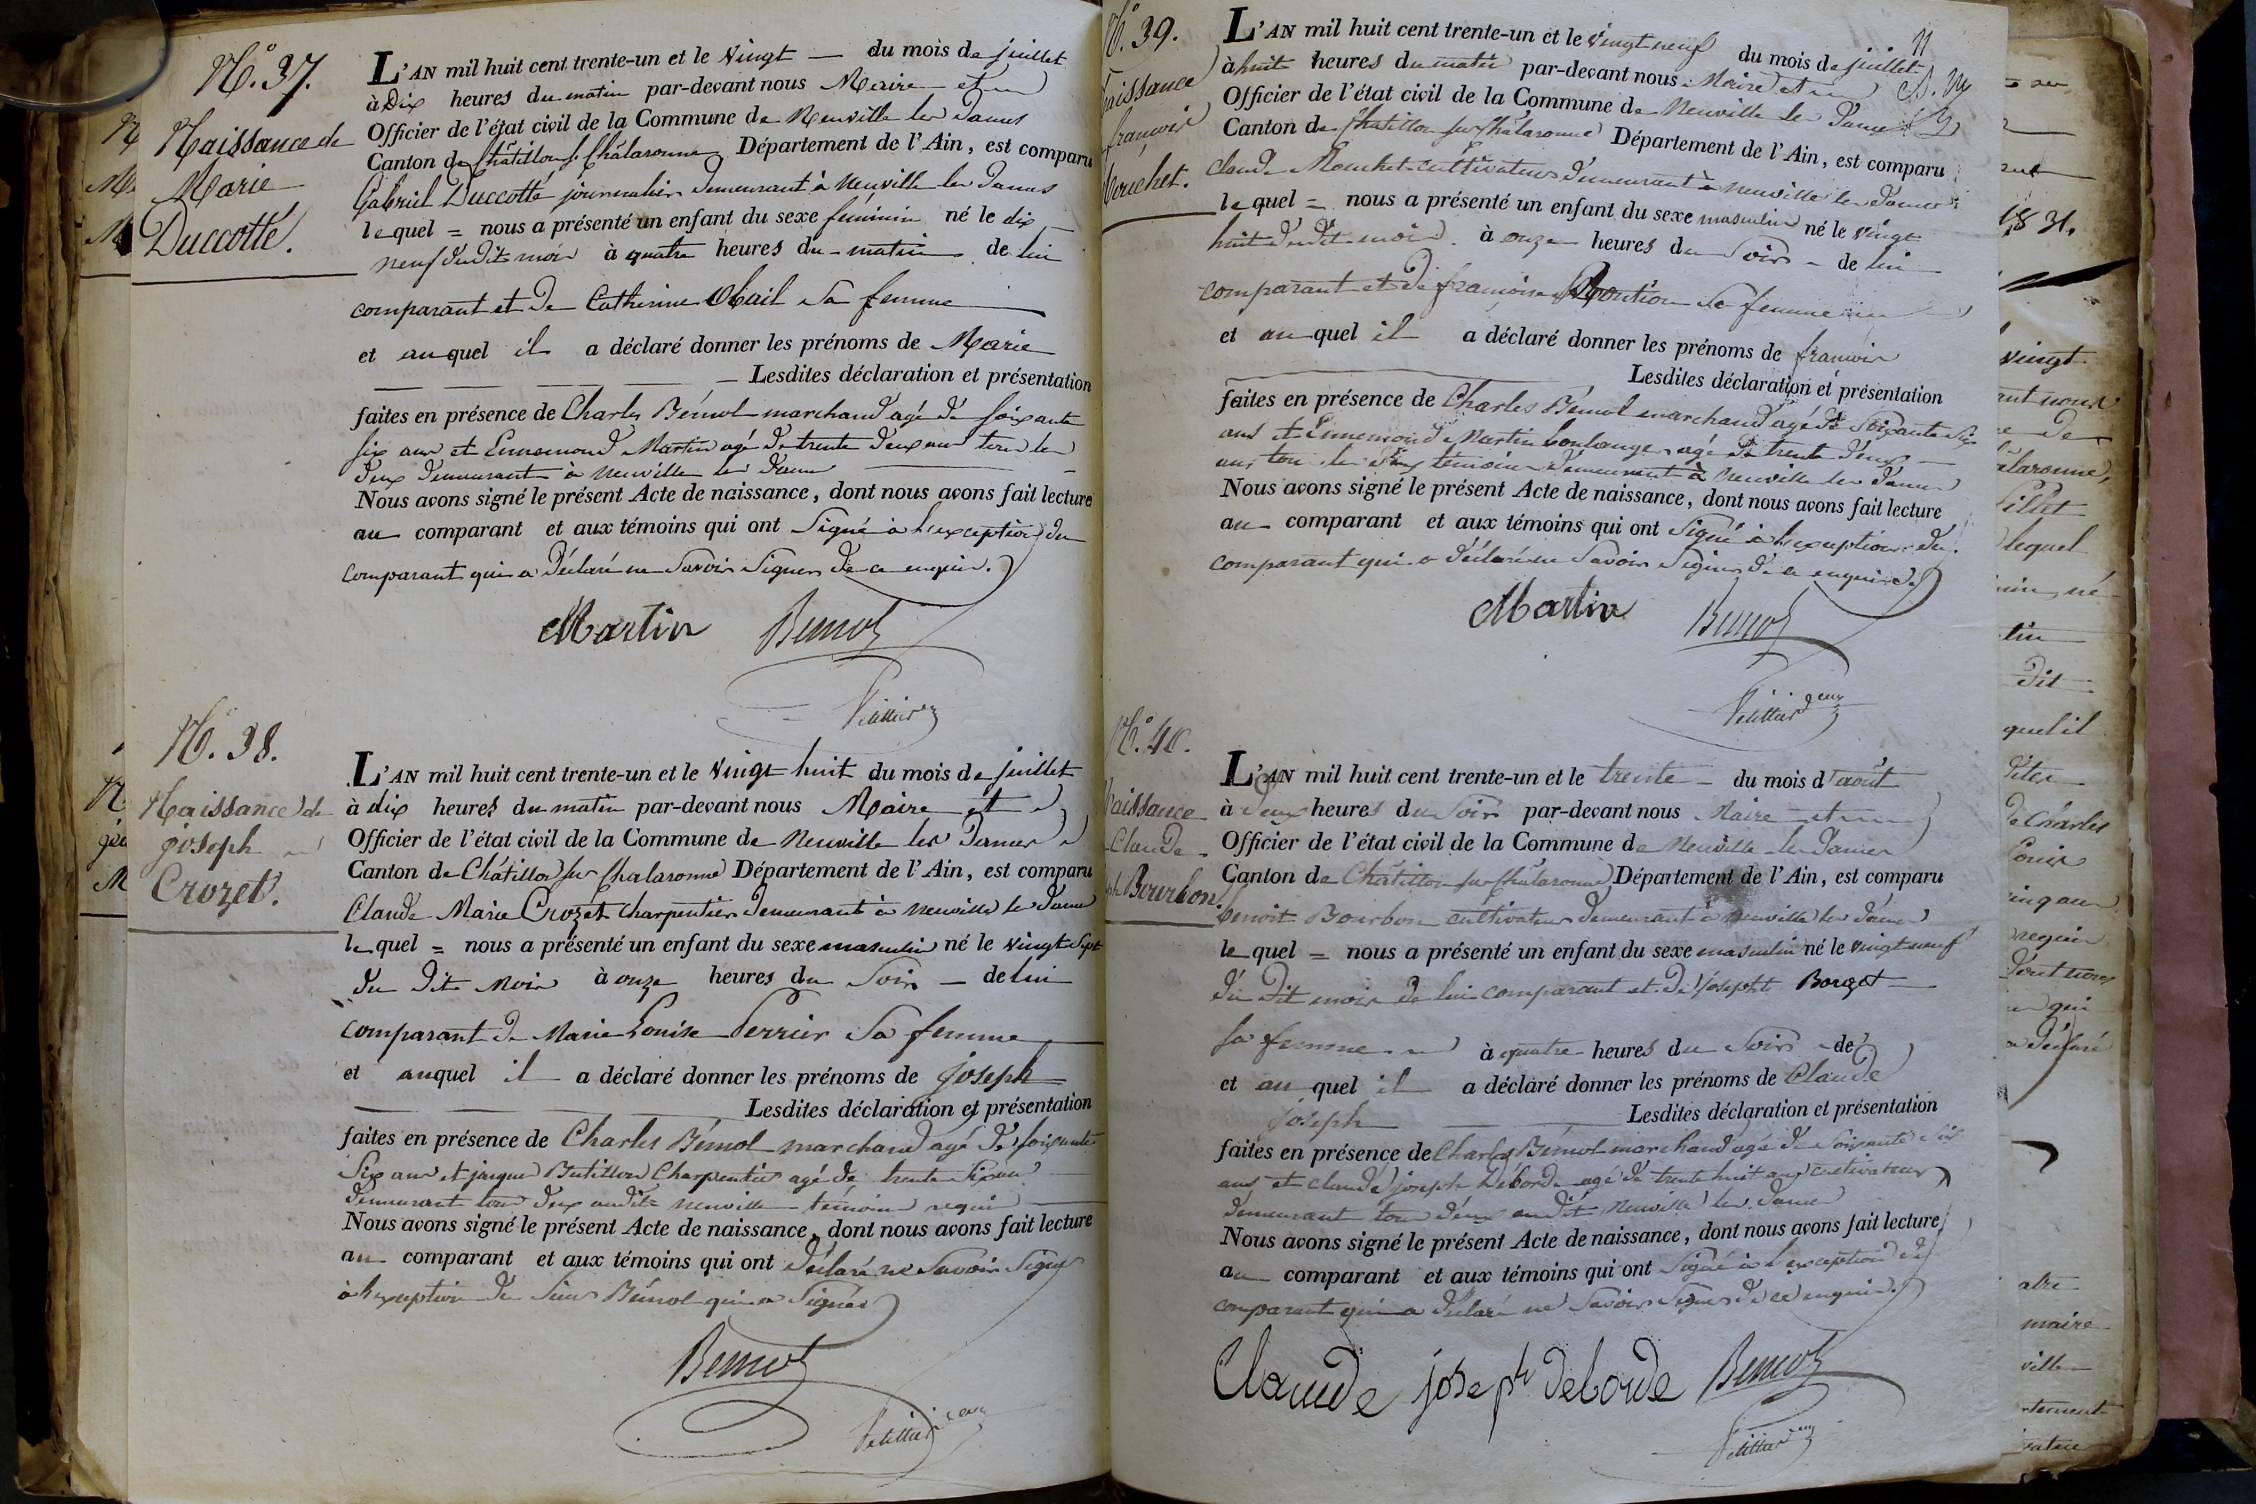 N.° 37.
Naissance de
Marie
Duccotté.
L'AN mil huit cent trente-un et le vingt — du mois de juillet
à Dix heures du matin par-devant nous Maire et
Officier de l'état civil de la Commune de Neuville les Dames
Canton de Châtillon s. Châlaronne Département de l'Ain, est comparu
Gabriel Duccotté journalier demeurant à Neuville les Dames
lequel = nous a présenté un enfant du sexe féminin né le dix
neuf du dit mois à quatre heures du matin de lui
comparant et de Catherine Obail sa femme
et auquel il a déclaré donner les prénoms de Marie
Lesdites déclaration et présentation
faites en présence de Charles Bémol marchand agé de soixante
six ans et Ennemond Martin agé de trente deux ans tous les
deux demeurant à Neuville les Dames
Nous avons signé le présent Acte de naissance, dont nous avons fait lecture
au comparant et aux témoins qui ont signé à l'exception du
comparant qui a déclaré ne savoir signer de ce enquis.
Martin Bémol
N.° 38.
Naissance de
joseph
Crozet.
L'AN mil huit cent trente-un et le vingt huit du mois de juillet
à dix heures du matin par-devant nous Maire et
Officier de l'état civil de la Commune de Neuville les Dames
Canton de Châtillon sur Chalaronne Département de l'Ain, est comparu
Claude Marie Crozet charpentier demeurant à Neuville les Dames
lequel = nous a présenté un enfant du sexe masculin né le vingt sept
du dit mois à onze heures du soir — de lui
comparant de Marie Louise Perrier sa femme
et auquel il a déclaré donner les prénoms de joseph
Lesdites déclaration et présentation
faites en présence de Charles Bémol marchand agé de soixante
six ans et jacques Butillon Charpentier agé de trente six ans
demeurant tous deux audit Neuville témoins requis
Nous avons signé le présent Acte de naissance, dont nous avons fait lecture
au comparant et aux témoins qui ont déclaré ne savoir signer
à l'exception du sieur Bémol qui a signé
Bémol
N.° 39.
Naissance
françois
Mouchet.
11
L'AN mil huit cent trente-un et le vingt neuf du mois de juillet
à huit heures du matin par-devant nous Maire et
Officier de l'état civil de la Commune de Neuville les Dames
Canton de Châtillon sur Châlaronne Département de l'Ain, est comparu
Claude Mouchet cultivateur demeurant à Neuville les Dames
lequel = nous a présenté un enfant du sexe masculin né le vingt
huit du dit mois à onze heures du soir — de lui
comparant et de françoise sa femme
et auquel il a déclaré donner les prénoms de françois
Lesdites déclaration et présentation
faites en présence de Charles Bémol marchand agé de soixante six
ans et Ennemond Martin boulanger agé de trente deux
ans tous les deux témoins demeurant à Neuville les Dames
Nous avons signé le présent Acte de naissance, dont nous avons fait lecture
au comparant et aux témoins qui ont signé à l'exception du
comparant qui a déclaré ne savoir signer de ce enquis
Martin Bémol
N.° 40.
Naissance
Claude
Bourbon.
L'AN mil huit cent trente-un et le trente — du mois d'août
à deux heures du soir par-devant nous Maire et
Officier de l'état civil de la Commune de Neuville les Dames
Canton de Châtillon sur Châlaronne Département de l'Ain, est comparu
benoit Bourbon cultivateur demeurant à Neuville les Dames
lequel = nous a présenté un enfant du sexe masculin né le vingt neuf
du dit mois de lui comparant et de josephte Borget
sa femme à quatre heures du soir de
et auquel il a déclaré donner les prénoms de Claude
joseph Lesdites déclaration et présentation
faites en présence de Charles Bémol marchand agé de soixante six
ans et claude joseph Deborde agé de trente huit ans cultivateur
demeurant tous deux audit Neuville les Dames
Nous avons signé le présent Acte de naissance, dont nous avons fait lecture
au comparant et aux témoins qui ont signé à l'exception du
comparant qui a déclaré ne savoir signer de ce enquis.
Claude joseph deborde Bémol
1831.
vingt
lequel
quel il
de Charles
maire